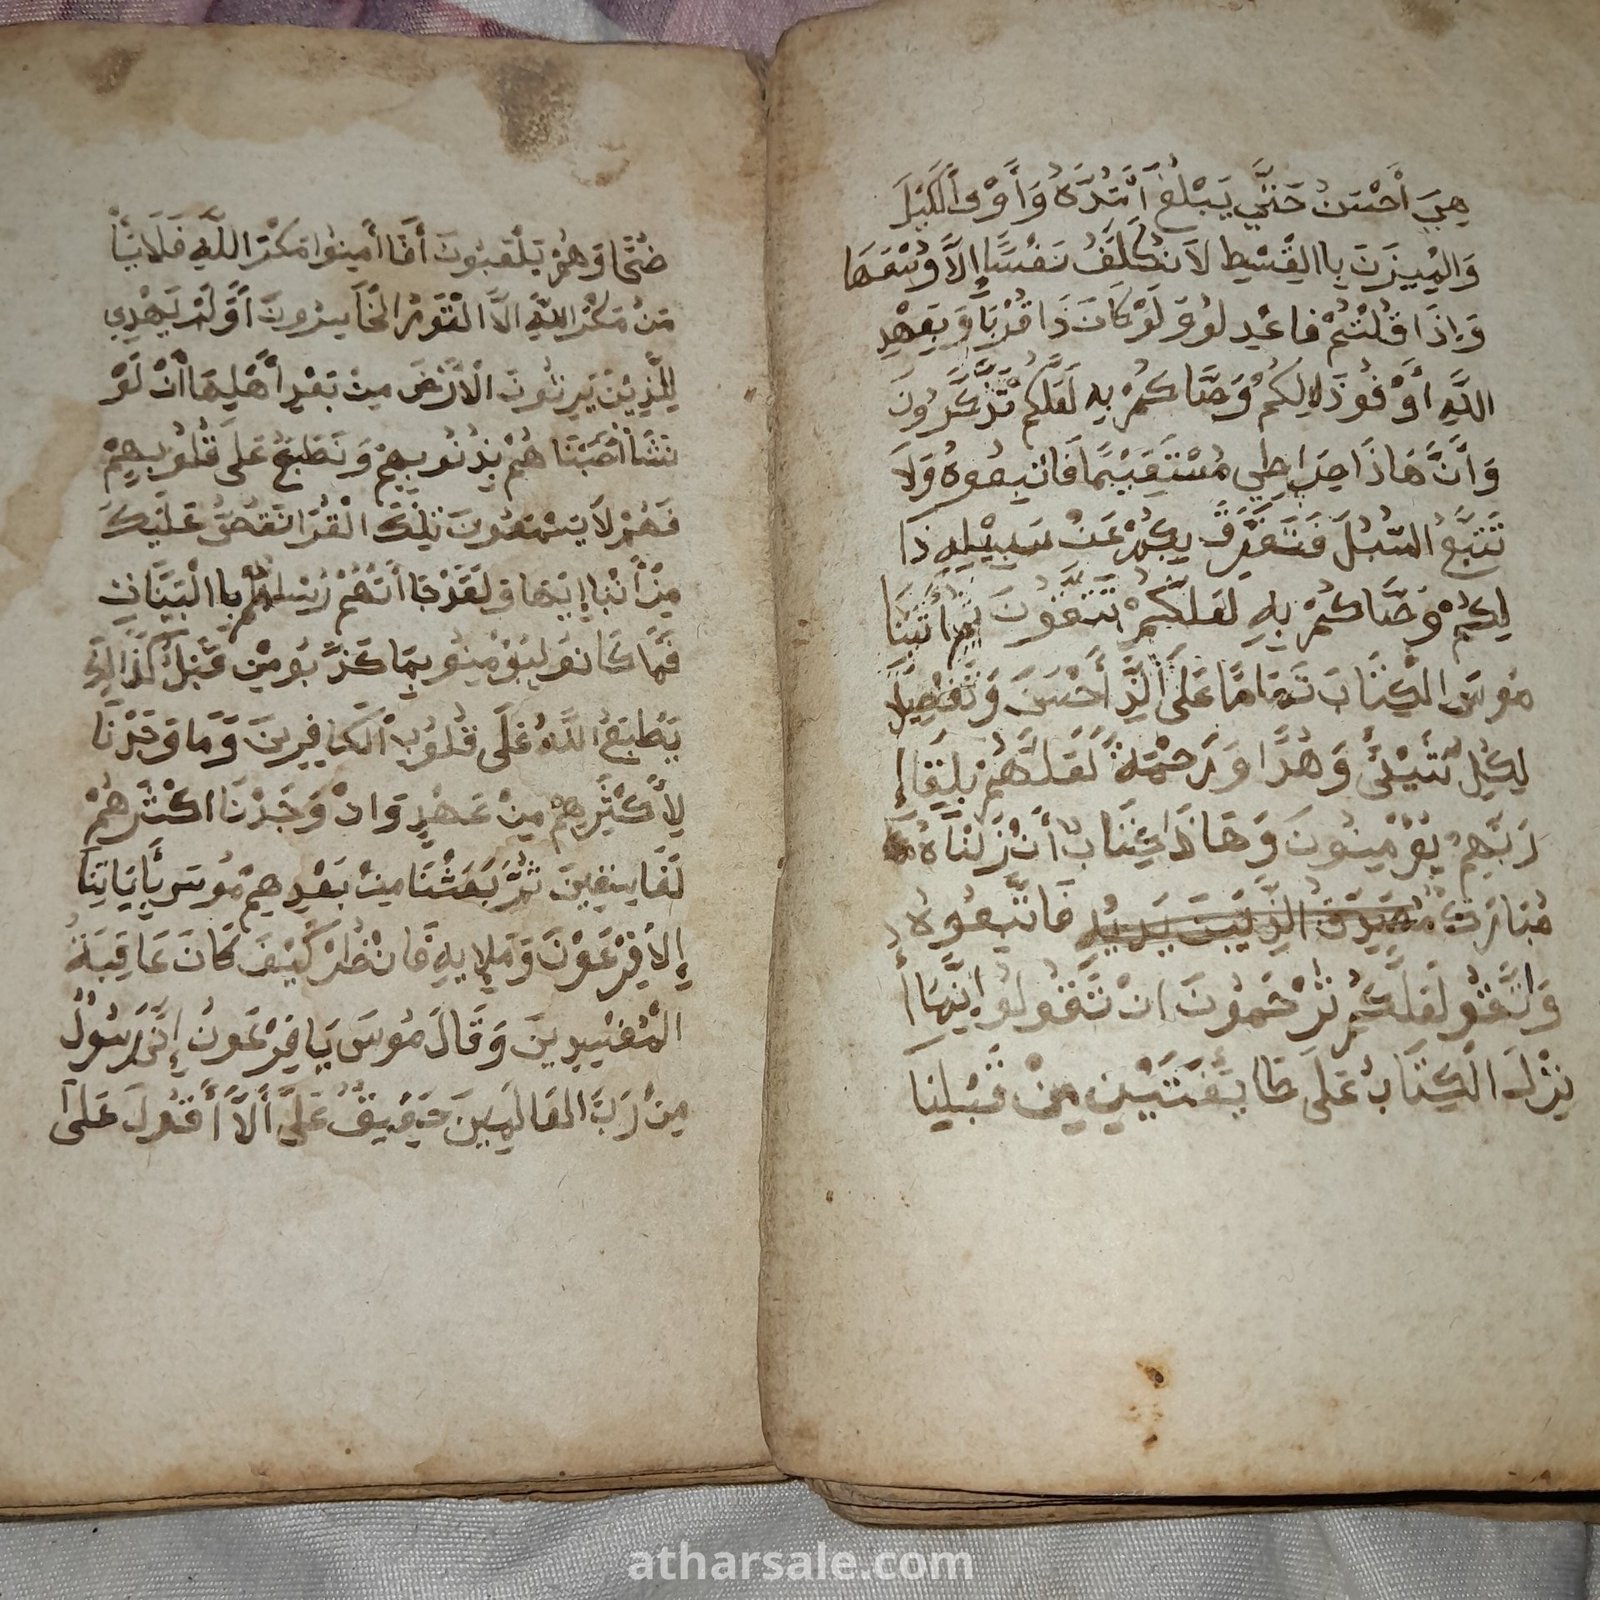 هِيَ أَحْسَنُ حَتَّي يَبْلُغَ أَشُدَّهُ وَأَوْفُ الْكَيْلَ
وَالْمِيزَنَ بِاالْقِسْطِ لَا نُكَلِّفُ نَفْسًا إِلَّا وُسْعَهَا
وَإِذَا قُلْتُمْ فاعْدِلُو وَلَوْ كَانَ ذَا قُرْبَا وَبِعَهْدِ
اللَّهِ أَوْفُو ذَالِكُمْ وَصَّاكُمْ بِهِ لَعَلَّكُمْ تَذَّكَّرُونَ
وَأَنَّ هَاذَا صِرَاطِي مُسْتَقِيمًا فَاتَّبِعُوهُ وَلَا
تَتَّبِعُ السُّبُلَ فَتَفَرَّقَ بِكُمْ عَنْ سَبِيلِهِ ذَا
لِكُمْ وَصَّاكُمْ بِهِ لَعَلَّكُمْ تَتَّقُونَ ثُمَّ أَتَيْنَا
مُوسَى الْكِتَابَ تَمَامًا عَلَى الَّذِ أَحْسَنَ وَتَفْصِيلًا
لِكُلِّ شَيْئٍ وَهُدًا وَرَحْمَةً لَعَلَّهُمْ بِلِقَاإِ
رَبِّهِمْ يُؤْمِنُونَ وَهَاذَا كِتَابٌ أَنْزَلْنَاهُ
مُبَارَكٌ مُصَدِّقُ الَّذِي بَيْنَ يَدَيْهِ فَاتَّبِعُوهُ
وَاتَّقُو لَعَلَّكُمْ تُرْحَمُونَ انْ تَقُولُو إِنَّمَا أُ
نْزِلَ الْكِتَابُ عَلَى طَايِفَتَيْنِ مِنْ قَبْلِنَا
ضُحًا وَهُمْ يَلْعَبُونَ أَفَا أَمِنُوا مَكْرَ اللَّهِ فَلَا يَأْ
مَنُ مَكْرَ اللَّهِ الَّا الْقَوْمُ الْخَاسِرُونَ أَوَلَمْ يَهْدِي
لِلَّذِينَ يَرِثُونَ الْأَرْضَ مِنْ بَعْدِ أَهْلِهَا أَنْ لَوْ
نَشَا أَصَبْنَا هُمْ بِذُنُوبِهِمْ وَنَطْبَعُ عَلَى قُلُوبِهِمْ
فَهُمْ لَا يَسْمَعُونَ تِلْكَ الْقُرَا نَقُصُّ عَلَيْكَ
مِنْ أَنْبَاإِيْهَا وَلَقَدْ جَا أَتْهُمْ رُسُلُهُمْ بِاالْبَيِّنَاتِ
فَمَا كَانُو لِيُؤْمِنُو بِمَا كَذَّبُو مِنْ قَبْلُ كَذَالِكَ
يَطْبَعُ اللَّهُ عَلَى قُلُوبِ الْكَافِرِينَ وَمَا وَجَدْنَا
لِأَكْثَرِهِمْ مِنْ عَهْدٍ وَانْ وَجَدْنَا اكْثَرَهُمْ
لَفَاسِقِينَ ثُمَّ بَعَثْنَا مِنْ بَعْدِهِمْ مُوسَى بِأَيَاتِنَا
إِلَا فِرْعَوْنَ وَمَلَإِيهِ فَانْظُرْ كَيْفَ كَانَ عَاقِبَةُ
الْمُفْسِدِينَ وَقَالَ مُوسَى يَا فِرْعَوْنُ إِنِّي رَسُولٌ
مِنْ رَبِّ الْعَالَمِينَ حَقِيقٌ عَلَيَّ أَلَّا أَقُولَ عَلَى
atharsale.com